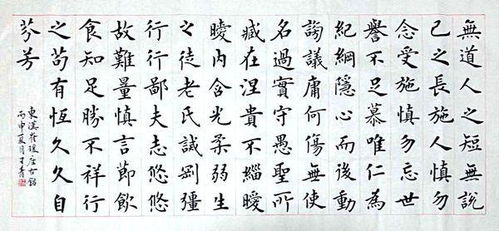 無道人之短無說
己之長施人慎勿
念受施慎勿忘世
譽不足慕唯仁為
紀綱隱心而後動
謗議庸何傷無使
名過實守愚聖所
臧在涅貴不緇曖
曖內含光柔弱生
之徒老氏誡剛彊
行行鄙夫志悠悠
故難量慎言節飲
食知足勝不祥行
之苟有恆久久自
芬芳
東漢崔瑗座右銘
丙申夏月